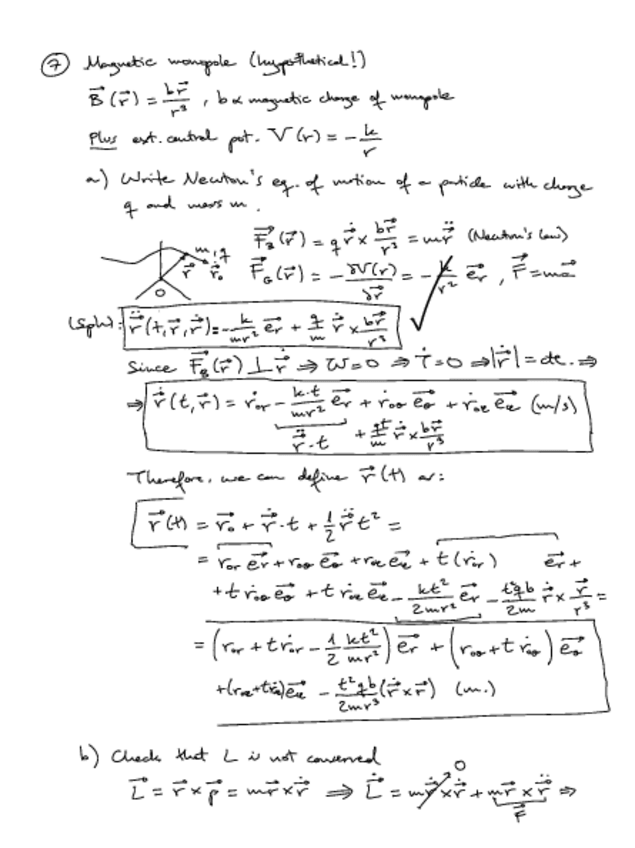 ⑦ Magnetic monopole (hypothetical!)
B⃗(r⃗) = br⃗/r³ , b ∝ magnetic charge of monopole
Plus ext. central pot. V(r) = -k/r
a) Write Newton's eq. of motion of a particle with charge
q and mass m.
F⃗_B(r⃗) = q ṙ⃗ × br⃗/r³ = m r̈⃗ (Newton's law)
m, q
r⃗ ṙ⃗₀
O
F⃗_G(r⃗) = -∂V(r)/∂r⃗ = -k/r² e⃗_r , F⃗ = ma⃗
(Sph): r̈⃗(t, r⃗, ṙ⃗) = -k/mr² e⃗_r + q/m ṙ⃗ × br⃗/r³ ✓
Since F⃗_B(r⃗) ⊥ ṙ⃗ ⇒ W=0 ⇒ Ṫ=0 ⇒ |ṙ⃗| = cte. ⇒
⇒ ṙ⃗(t, r⃗) = ṙ₀r - k·t/mr² e⃗_r + ṙ₀θ e⃗_θ + ṙ₀φ e⃗_φ (m/s)
r̈⃗·t + qt/m ṙ⃗ × br⃗/r³
Therefore, we can define r⃗(t) as:
r⃗(t) = r⃗₀ + ṙ⃗·t + ½ r̈⃗ t² =
= r₀r e⃗_r + r₀θ e⃗_θ + r₀φ e⃗_φ + t(ṙ₀r) e⃗_r +
+ t ṙ₀θ e⃗_θ + t ṙ₀φ e⃗_φ - kt²/2mr² e⃗_r - t²qb/2m ṙ⃗ × r⃗/r³ =
= (r₀r + tṙ₀r - 1/2 kt²/mr²) e⃗_r + (r₀θ + t ṙ₀θ) e⃗_θ
+(r₀φ+tṙ₀φ)e⃗_φ - t²qb/2mr³ (ṙ⃗×r⃗) (m.)
b) Check that L is not conserved
L⃗ = r⃗ × p⃗ = mr⃗ × ṙ⃗ ⇒ L̇⃗ = mṙ⃗ × ṙ⃗ + mr⃗ × r̈⃗ ⇒
0
F⃗